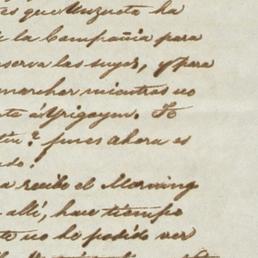 as que Unzueta ha
la Compañia para
serva las suyas, y para
marchar mientras no
te á Yrigoyen. Te
? pues ahora es
do.
a recibo el Morning
allí, hace tiempo
te no he podido ver